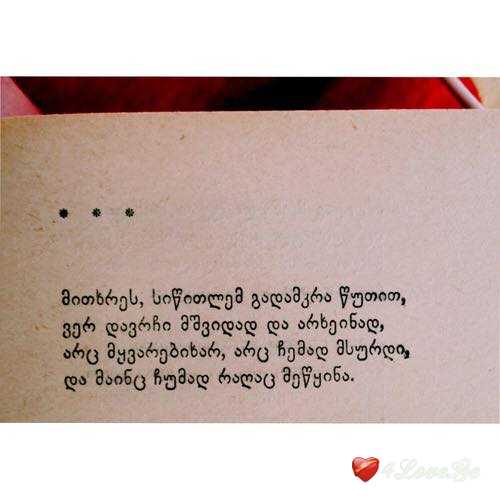 * * *
მითხრეს, სიწითლემ გადამკრა წუთით,
ვერ დავრჩი მშვიდად და არხეინად,
არც მყვარებიხარ, არც ჩემად მსურდი,
და მაინც ჩუმად რაღაც მეწყინა.
4Love.Ge